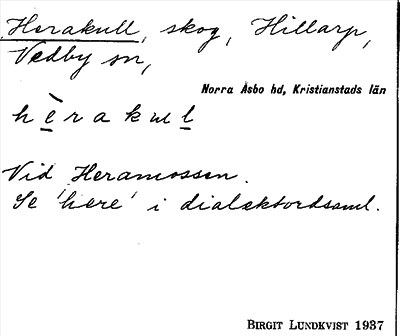 Herakull, skog, Hillarp,
Vedby sn,
Norra Åsbo hd, Kristianstads län
hèrakul
Vid Heramossen.
Se 'here' i dialektordsaml.
BIRGIT LUNDKVIST 1937